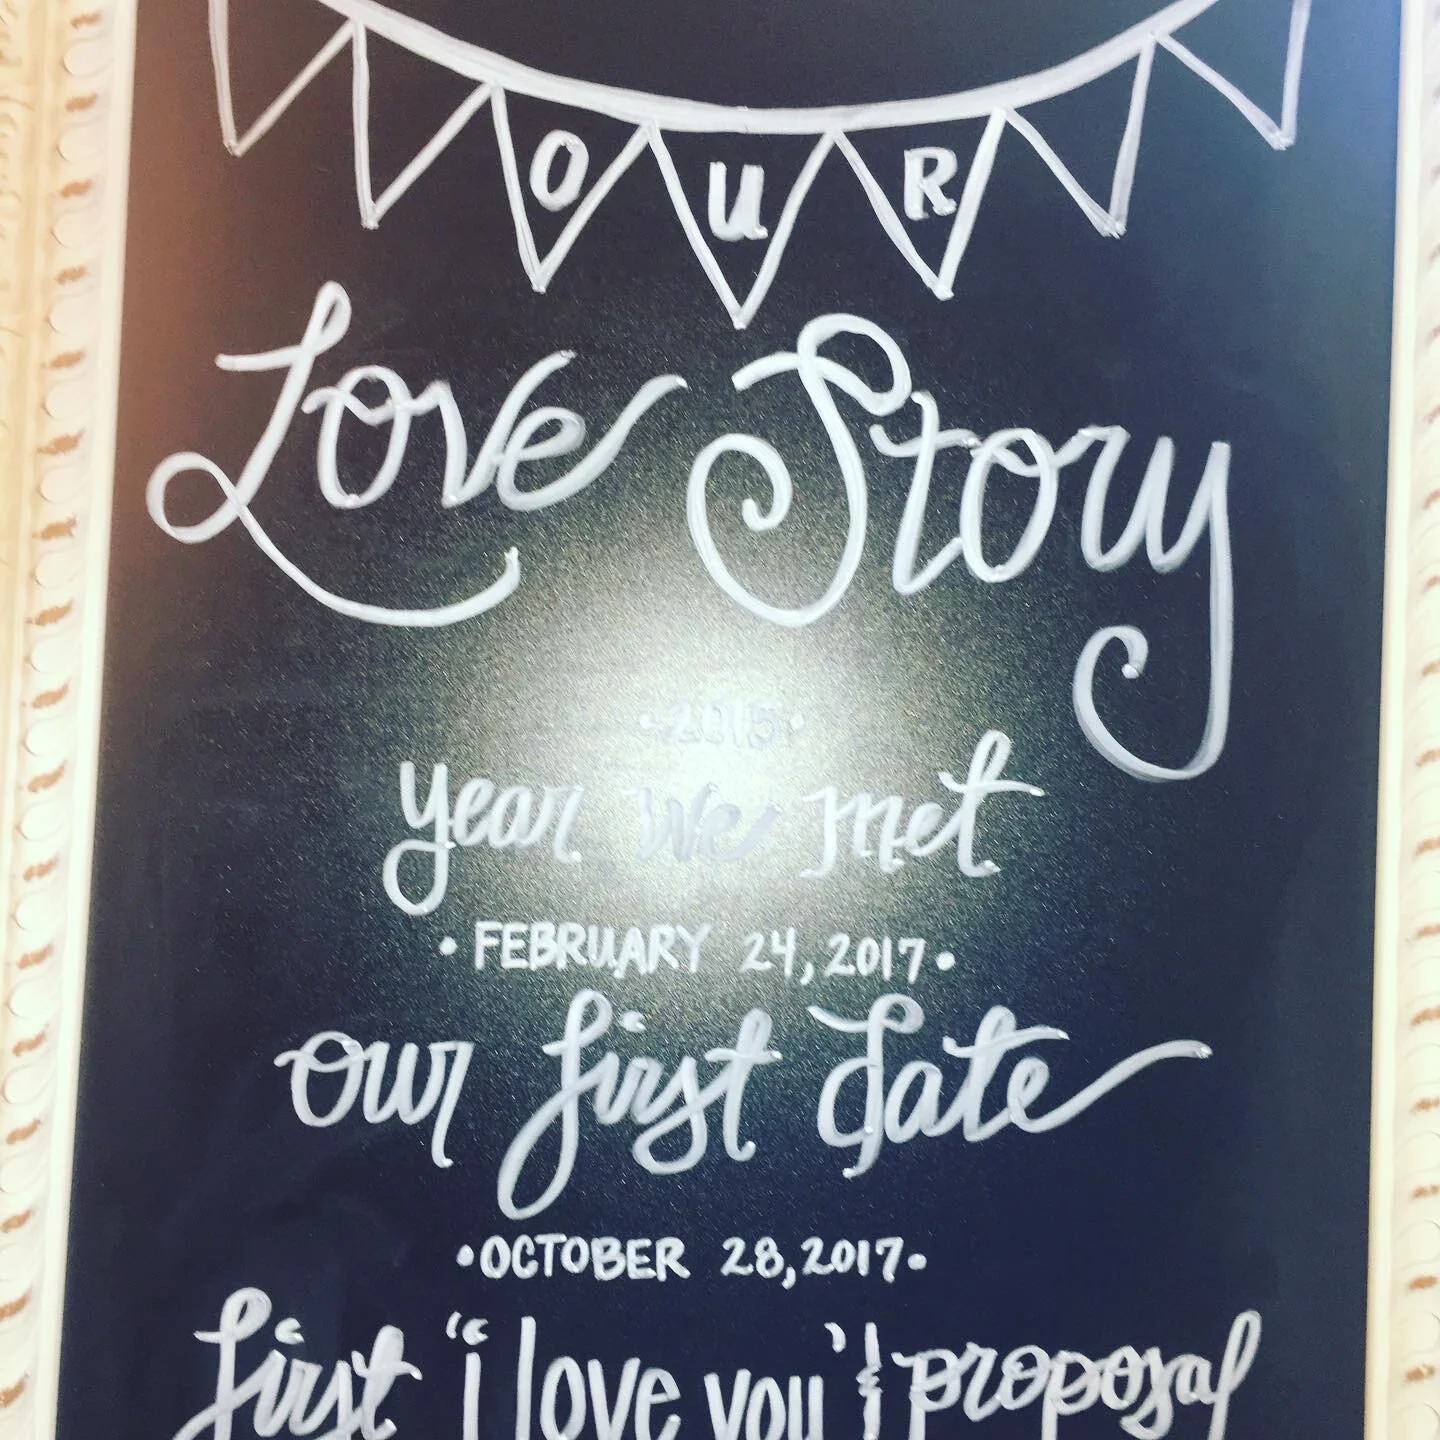 OUR
Love Story
•2015•
year we met
•FEBRUARY 24,2017•
our first date
•OCTOBER 28,2017•
first "i love you" & proposal